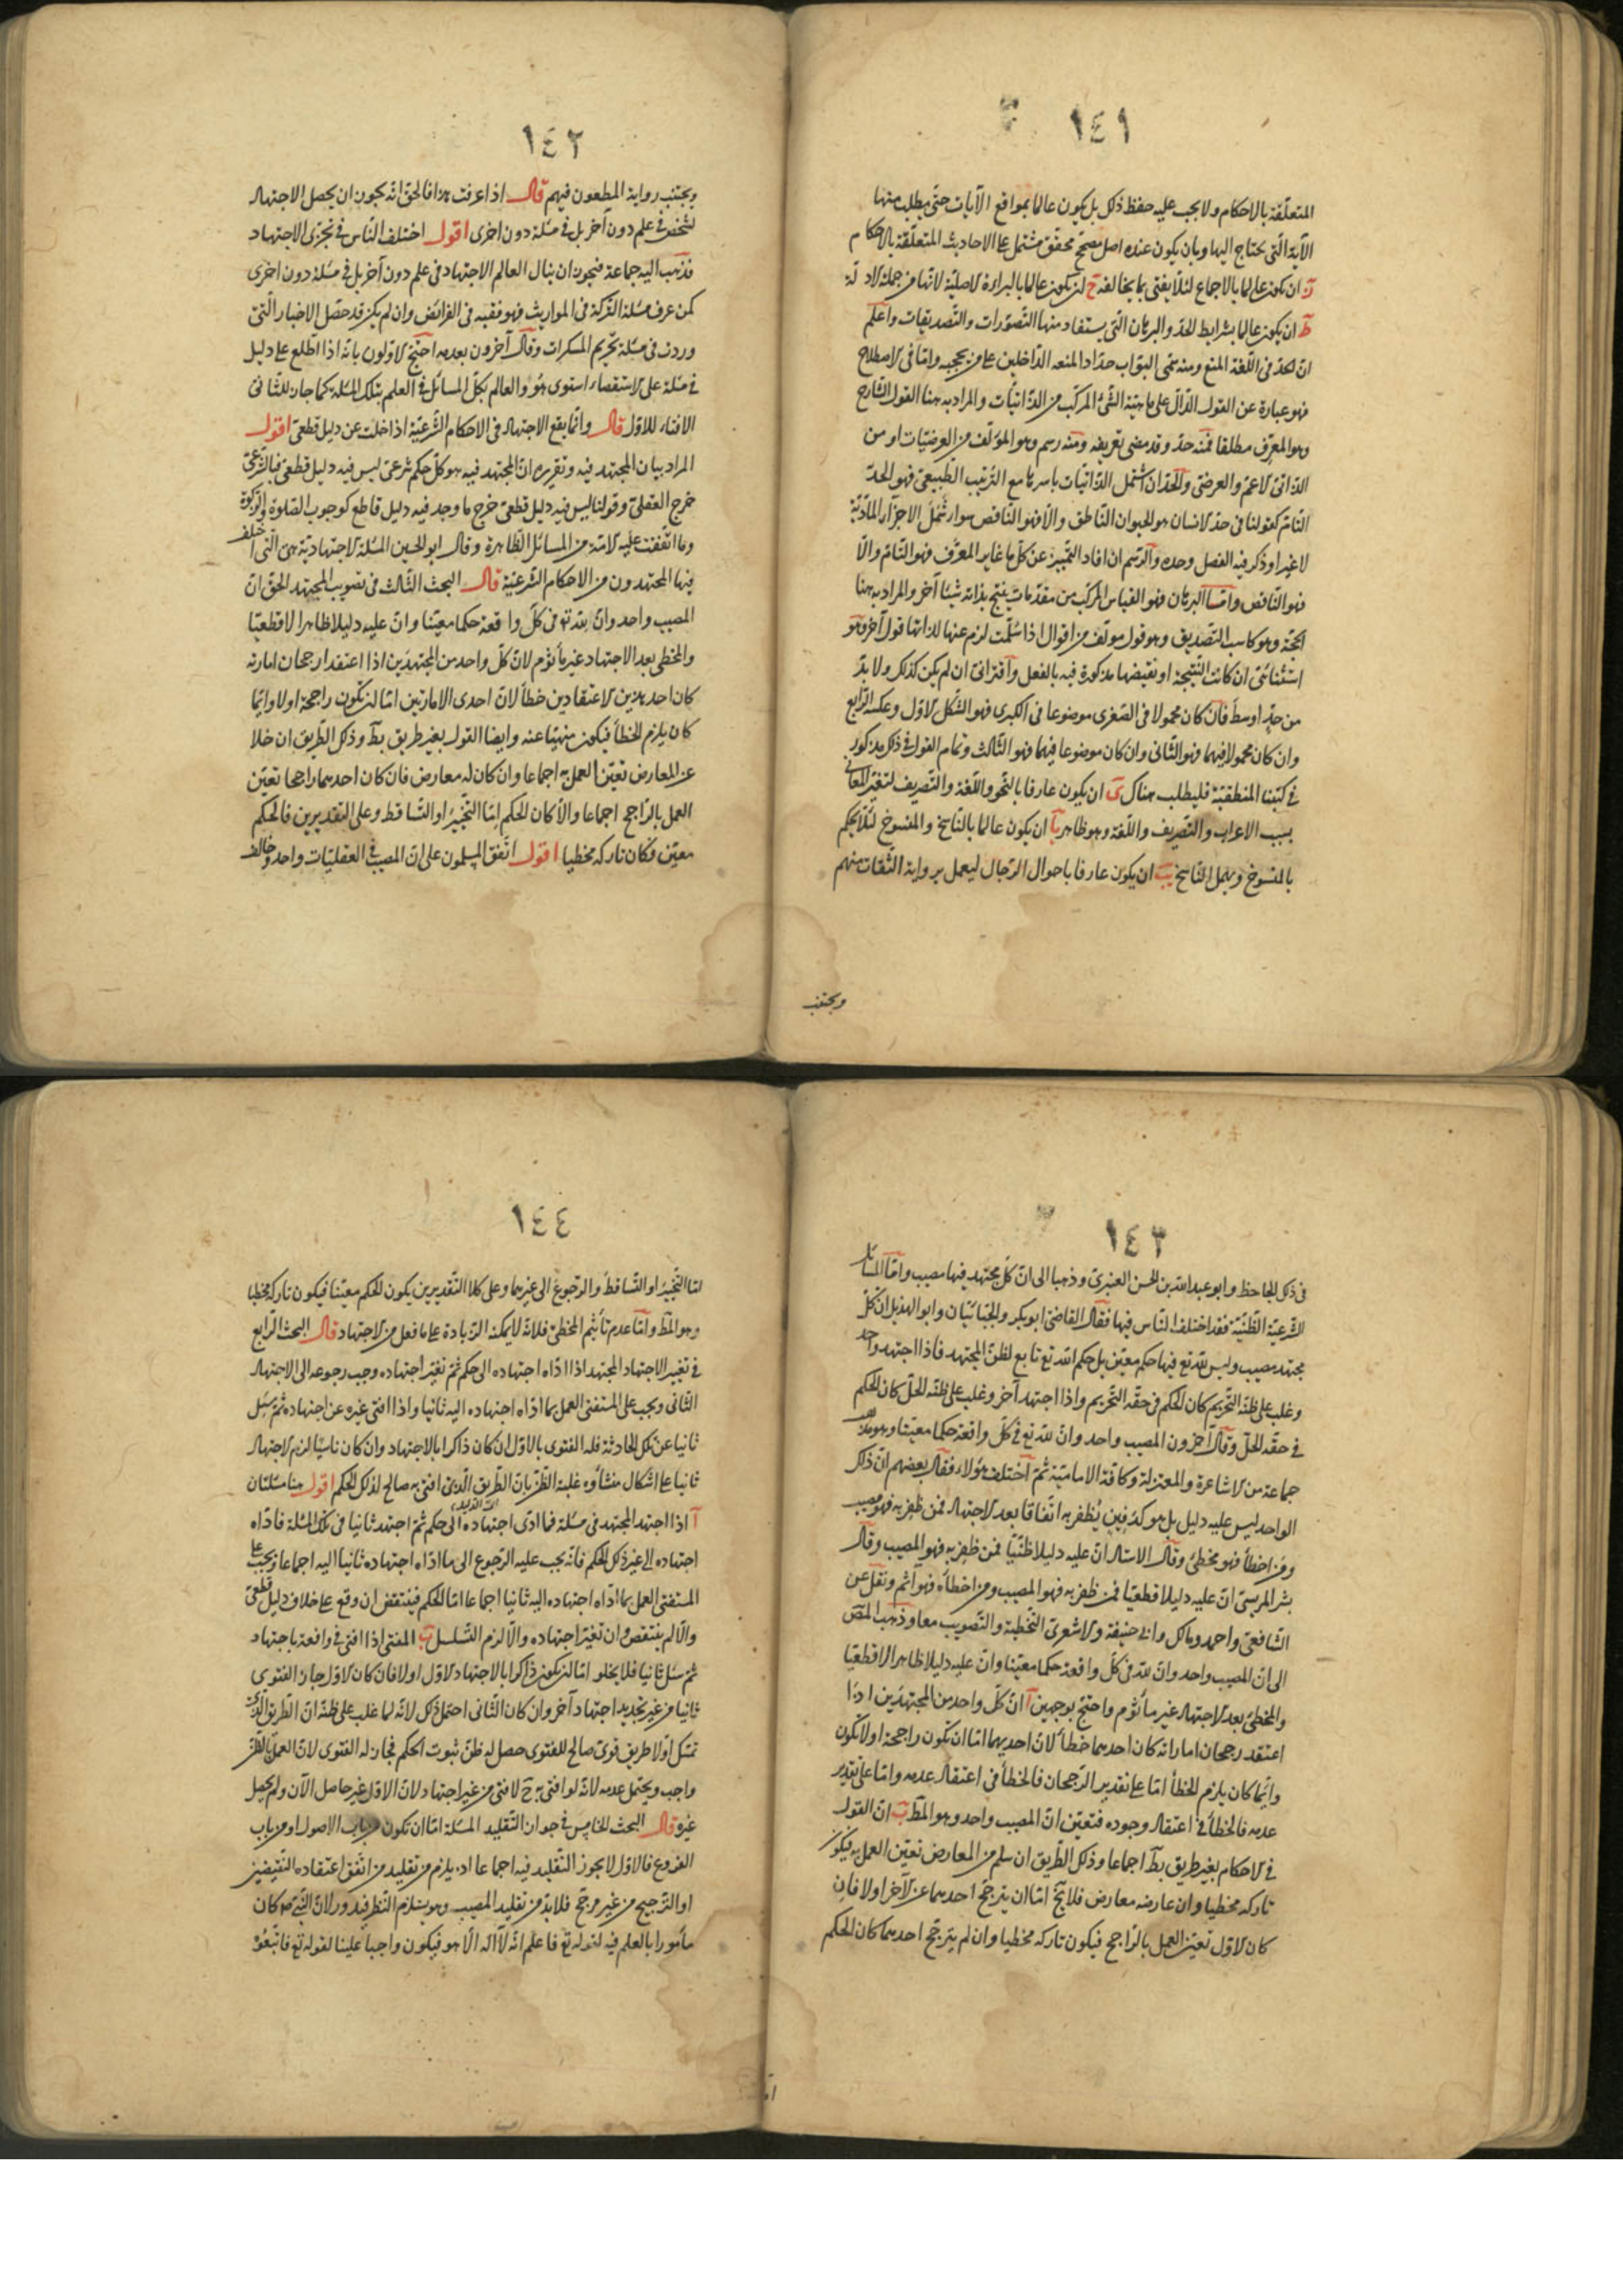 ١٤١
المتعلّقة بالاحكام ولا يجب عليه حفظ ذلك بل يكون عالما بمواقع الآيات حتّى يطلب منها
الآية الّتي يحتاج اليها وبان يكون عنده اصل مصحّح محقّق مشتمل على الاحاديث المتعلّقة بالاحكام
ز ان يكون عالما بالاجماع لئلّا يفتى بما يخالفه ح ان يكون عالما بالبراءة الاصليّة لانّها من جملة الادلّة
ط ان يكون عالما بشرايط الحدّ والبرهان الّتي يستفاد منها التصوّرات والتّصديقات واعلم
انّ الحدّ فى اللّغة المنع ومنه سمّى البوّاب حدّادا لمنعه الدّاخلين على من يحجبه وامّا فى الاصطلاح
فهو عبارة عن القول الدّالّ على ماهيّة الشّئ المركّب من الذّاتيّات والمراد به هنا القول الشّارح
وهو المعرّف مطلقا فمنه حدّ وقد مضى تعريفه ومنه رسم وهو المؤلّف من العرضيّات او من
الذّاتى الاعمّ والعرضى والحدّ ان اشتمل الذّاتيّات باسرها مع الترتيب الطّبيعى فهو الحدّ
التّامّ كقولنا فى حدّ الانسان هو الحيوان النّاطق والّا فهو النّاقص سواء شمل الاجزاء المادّيّة
لا غير او ذكر فيه الفصل وحده والرّسم ان افاد التّمييز عن كلّ ما غاير المعرّف فهو التّامّ والّا
فهو النّاقص وامّا البرهان فهو القياس المركّب من مقدّمات ينتج بذاته شيئا آخر والمراد به هنا
الحجّة وهو كاسب التّصديق وهو قول مولّف من اقوال اذا سلّمت لزم عنها لذاتها قول آخر وهو
استثنائى ان كانت النّتيجة او نقيضها مذكورة فيه بالفعل واقترانى ان لم يكن كذلك ولا بدّ
من حدّ اوسط فان كان محمولا فى الصّغرى موضوعا فى الكبرى فهو الشّكل الاوّل وعكسه الرّابع
وان كان محمولا فيهما فهو الثّانى وان كان موضوعا فيهما فهو الثّالث وتمام القول فى ذلك مذكور
فى كتبنا المنطقيّة فليطلب هناك ى ان يكون عارفا بالنّحو واللّغة والتّصريف لتغيّر المعانى
بسبب الاعراب والتّصريف واللّغة وهو ظاهر يا ان يكون عالما بالنّاسخ والمنسوخ لئلّا يحكم
بالمنسوخ ويهمل النّاسخ يب ان يكون عارفا باحوال الرّجال ليعمل برواية الثّقات منهم
ويجتنب
١٤٢
ويجتنب رواية المطعون فيهم قال اذا عرفت هذا فالحقّ انّه يجوز ان يحصل الاجتهاد
لشخص فى علم دون آخر بل فى مسئلة دون اخرى اقول اختلف النّاس فى تجزّى الاجتهاد
فذهب اليه جماعة فيجوز ان ينال العالم الاجتهاد فى علم دون آخر بل فى مسئلة دون اخرى
كمن عرف مسئلة التركة فى المواريث فهو فقيه فى الفرائض وان لم يكن قد حصّل الاخبار الّتى
وردت فى مسئلة تحريم المسكرات وقال آخرون بعدمه احتجّ الاوّلون بانّه اذا اطّلع على دليل
فى مسئلة على الاستقصاء استوى هو والعالم بكلّ المسائل فى العلم بتلك المسئلة كما جاز للثّانى
الافتاء للاوّل قال وانّما يقع الاجتهاد فى الاحكام الشّرعيّة اذا خلت عن دليل قطعى اقول
المراد بيان المجتهد فيه وتقريره انّ المجتهد فيه هو كلّ حكم شرعى ليس فيه دليل قطعى فبالشّرعىّ
خرج العقلى وقولنا ليس فيه دليل قطعى خرج ما وجد فيه دليل قاطع كوجوب الصّلوة والزّكوة
وما اتّفقت عليه الامّة من المسائل الظّاهرة وقال ابو الحسين المسئلة الاجتهاديّة هى الّتى اختلف
فيها المجتهدون من الاحكام الشّرعيّة قال البحث الثّالث فى تصويب المجتهد الحقّ انّ
المصيب واحد وانّ لله تع فى كلّ واقعة حكما معيّنا وانّ عليه دليلا ظاهرا لا قطعيّا
والمخطى بعد الاجتهاد غير مأثوم لانّ كلّ واحد من المجتهدين اذا اعتقد رجحان امارته
كان احد هذين الاعتقادين خطأ لانّ احدى الامارتين امّا ان تكون راجحة او لا وايّما
كان يلزم الخطأ فيكون منهيّا عنه وايضا القول بغير طريق بط وذلك الطّريق ان خلا
عن المعارض تعيّن العمل به اجماعا وان كان له معارض فان كان احدهما راجحا تعيّن
العمل بالرّاجح اجماعا والّا كان الحكم امّا التّخيير او التّساقط وعلى التّقديرين فالحكم
معيّن فكان تاركه مخطيا اقول اتّفق المسلمون على انّ المصيب فى العقليّات واحد وخالف
١٤٣
فى ذلك الجاحظ وابو عبد الله بن الحسن العنبرى وذهبا الى انّ كلّ مجتهد فيها مصيب وامّا المسائل
الشّرعيّة الظّنّيّة فقد اختلف النّاس فيها فقال القاضى ابو بكر والجبّائيّان وابو الهذيل انّ كلّ
مجتهد مصيب وليس لله تع فيها حكم معيّن بل حكم الله تع تابع لظنّ المجتهد فاذا اجتهد واحد
وغلب على ظنّه التّحريم كان الحكم فى حقّه التّحريم واذا اجتهد آخر وغلب على ظنّه الحلّ كان الحكم
فى حقّه الحلّ وقال آخرون المصيب واحد وانّ لله تع فى كلّ واقعة حكما معيّنا وهو مذهب
جماعة من الاشاعرة والمعتزلة وكافة الاماميّة ثمّ اختلف هؤلاء فقال بعضهم انّ ذلك
الواحد ليس عليه دليل بل هو كدفين يُظفر به اتّفاقا بعد الاجتهاد فمن ظفر به فهو مصيب
ومن اخطأ فهو مخطئ وقال الاستاد انّ عليه دليلا ظنّيّا فمن ظفر به فهو المصيب وقال
بشر المريسى انّ عليه دليلا قطعيّا فمن ظفر به فهو المصيب ومن اخطأه فهو آثم ونقل عن
الشّافعى واحمد ومالك وابى حنيفة والاشعرى التّخطئة والتّصويب معا وذهب المصّ
الى انّ المصيب واحد وانّ لله فى كلّ واقعة حكما معيّنا وانّ عليه دليلا ظاهرا لا قطعيّا
والمخطئ بعد الاجتهاد غير مأثوم واحتجّ بوجهين ا انّ كلّ واحد من المجتهدين اذا
اعتقد رجحان امارته كان احدهما خطأ لانّ احديهما امّا ان تكون راجحة او لا تكون
وايّما كان يلزم الخطأ امّا على تقدير الرّجحان فالخطأ فى اعتقاد عدمه وامّا على تقدير
عدمه فالخطأ فى اعتقاد وجوده فتعيّن انّ المصيب واحد وهو المطّ ب انّ القول
فى الاحكام بغير طريق بط اجماعا وذلك الطّريق ان سلم من المعارض تعيّن العمل به فيكون
تاركه مخطيا وان عارضه معارض فلا يخّ امّا ان يترجّح احدهما عن الآخر او لا فان
كان الاوّل تعيّن العمل بالرّاجح فيكون تاركه مخطيا وان لم يترجّح احدهما كان الحكم
١٤٤
امّا التّخيير او التّساقط والرّجوع الى غيرهما وعلى كلا التّقديرين يكون الحكم معيّنا فيكون تاركه مخطيا
وهو المطّ وامّا عدم تأثيم المخطئ فلانّه لا يمكنه الزّيادة على ما فعل من الاجتهاد قال البحث الرّابع
فى تغيير الاجتهاد المجتهد اذا ادّاه اجتهاده الى حكم ثمّ تغيّر اجتهاده وجب رجوعه الى الاجتهاد
الثّانى ويجب على المستفتى العمل بما ادّاه اجتهاده اليه ثانيا واذا افتى غيره عن اجتهاده ثمّ سئل
ثانيا عن تلك الحادثة فله الفتوى بالاوّل ان كان ذاكرا بالاجتهاد وان كان ناسيا لزم الاجتهاد
ثانيا على اشكال منشأوه غلبة الظّنّ بانّ الطّريق الّذى افتى به صالح لذلك الحكم اقول هنا مسئلتان
ا اذا اجتهد المجتهد فى مسئلة فما ادّى اجتهاده الى حكم ثمّ اجتهد ثانيا فى تلك المسئلة فادّاه
اجتهاده الى غير ذلك الحكم فانّه يجب عليه الرّجوع الى ما ادّاه اجتهاده ثانيا اليه اجماعا ويجب على
المستفتى العمل بما ادّاه اجتهاده اليه ثانيا اجماعا امّا الحكم فينتقض ان وقع على خلاف دليل قطعى
والّا لم ينتقض وان تغيّر اجتهاده والّا لزم التّسلسل ب المفتى اذا افتى فى واقعة باجتهاد
ثمّ سئل ثانيا فلا يخلو امّا ان يكون ذاكرا بالاجتهاد الاوّل او لا فان كان الاوّل جاز الفتوى
ثانيا من غير تجديد اجتهاد آخر وان كان الثّانى احتمل ذلك لانّه لما غلب على ظنّه انّ الطّريق الّذى
تمسّك اوّلا طريق قوىّ صالح للفتوى حصل له ظنّ ثبوت الحكم فجاز له الفتوى لانّ العمل بالظّنّ
واجب ويحتمل عدمه لانّه لو افتى به ح لافتى من غير اجتهاد لانّ الاوّل غير حاصل الآن ولم يحصل
غيره قال البحث الخامس فى جواز التّقليد المسئلة امّا ان تكون من باب الاصول او من باب
الفروع فالاوّل لا يجوز التّقليد فيه اجماعا اذ يلزم من تقليد من اتّفق اعتقاده النّقيضين
او التّرجيح من غير مرجّح فلا بدّ من تقليد المصيب وهو يستلزم النّظر فيدور ولانّ النّبى ص كان
مأمورا بالعلم فيه لقوله تع فاعلم انّه لا اله الّا هو فيكون واجبا علينا لقوله تع فاتّبعوه